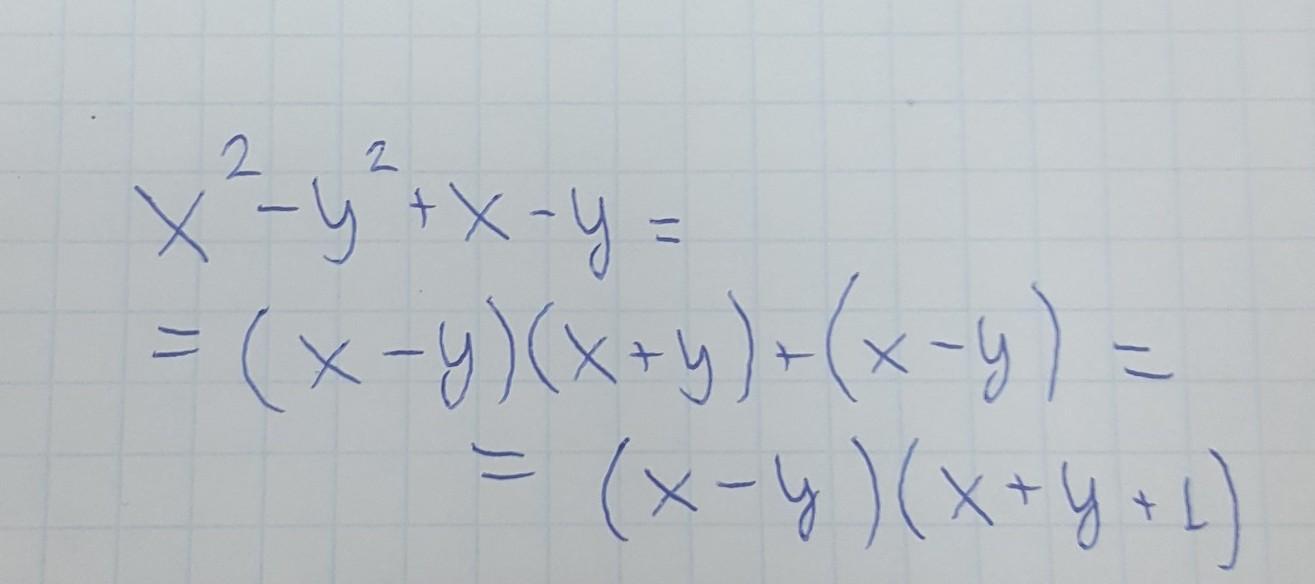 x² - y² + x - y =
= (x - y)(x + y) + (x - y) =
= (x - y)(x + y + 1)